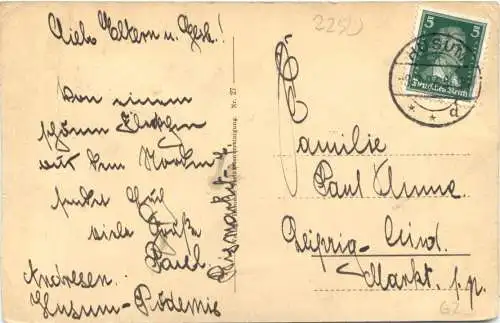 Liebe Eltern u. Gesch.!
Von einem
schönen Fleckchen
aus dem Norden
sendet Euch
viele Grüße
Paul.
Andresen.
Husum-Rödemis
Nr. 27
225
5
Deutsches Reich
HUSUM
Familie
Paul
Leipzig-Lind.
Markt.
GZ